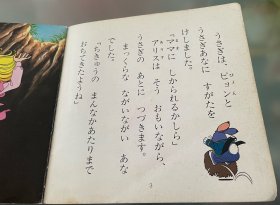 うさぎは、ピョンと
うさぎあなに すがたを
けしました。
「ママに しかられるかしら」
アリスは そう おもいながら、
うさぎの あとに つづきます。
まっくらな ながいながい あな
でした。
「ちきゅうの まんなかあたりまで
おちてきたようね」
3